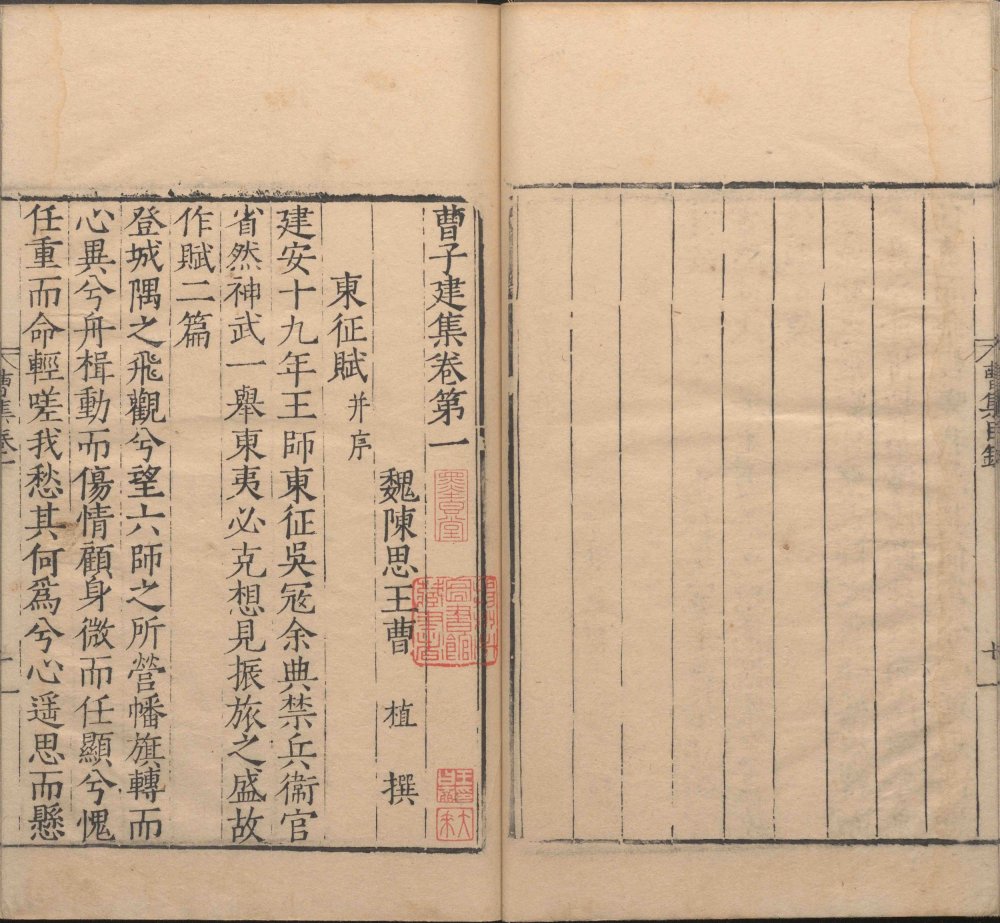 曹集目錄
曹子建集卷第一
魏陳思王曹 植 撰
東征賦并序
建安十九年王師東征吳寇余典禁兵衞官
省然神武一舉東夷必克想見振旅之盛故
作賦二篇
登城隅之飛觀兮望六師之所營幡旗轉而
心異兮舟楫動而傷情顧身微而任顯兮愧
任重而命輕嗟我愁其何爲兮心遥思而懸
曹集卷一
一